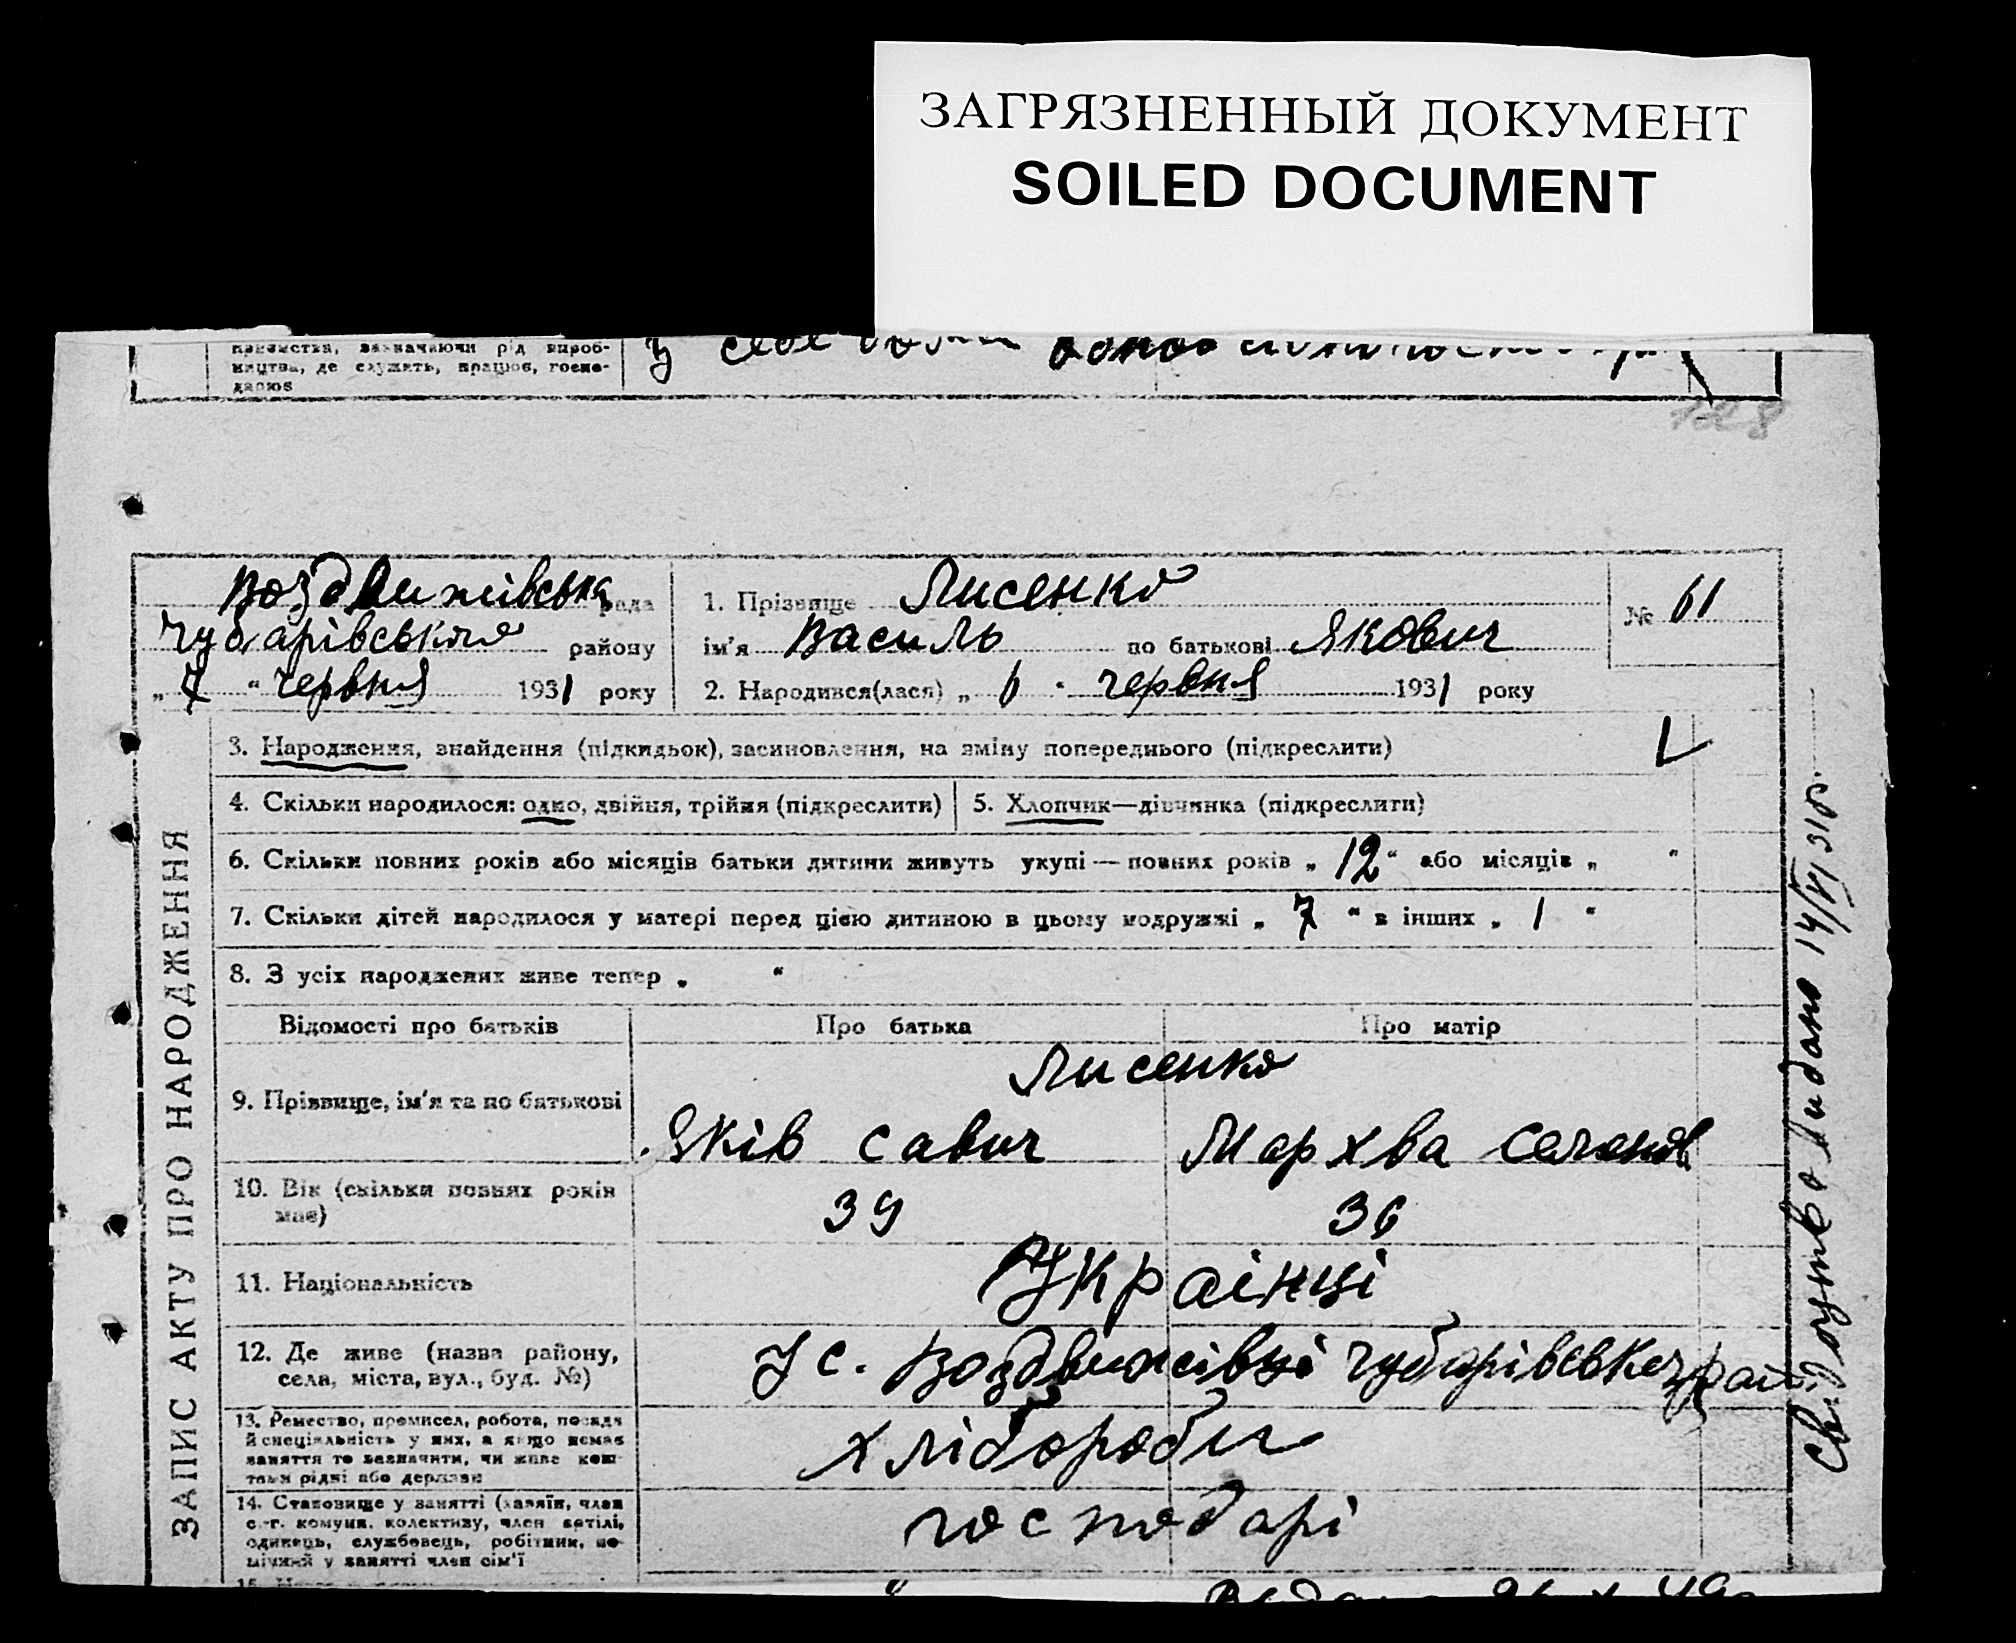 ЗАГРЯЗНЕННЫЙ ДОКУМЕНТ
SOILED DOCUMENT
зазначаючи рід вироб-
ництва, де служить, працює, госпо-
дарює
у себе
128
Воздвижівська рада
Чубарівського району
„ 7 “ червня 1931 року
1. Прізвище Лисенко
ім'я Василь по батькові Якович
2. Народився(лася) „ 6 “ червня 1931 року
№ 61
3. Народження, знайдення (підкидьок), засиновлення, на зміну попереднього (підкреслити)
4. Скільки народилося: одно, двійня, трійня (підкреслити)
5. Хлопчик—дівчинка (підкреслити)
6. Скільки повних років або місяців батьки дитини живуть укупі — повних років „ 12 “ або місяців „ “
7. Скільки дітей народилося у матері перед цією дитиною в цьому подружжі „ 7 “ в інших „ 1 “
8. З усіх народжених живе тепер „ “
Відомості про батьків
Про батька
Про матір
9. Прізвище, ім'я та по батькові
Лисенко
Яків Савич
Мархва
10. Вік (скільки повних років
має)
39
36
11. Національність
Українці
12. Де живе (назва району,
села, міста, вул., буд. №)
У с. Воздвижівці Чубарівськ. рай
13. Ремество, промисел, робота, посада
й спеціяльність у них, а якщо немає
заняття то зазначити, чи живе кош-
тами рідні або держави
хлібороби
14. Становище у занятті (хазяїн, член
с.-г. комуни, колективу, член артілі,
одинець, службовець, робітник, по-
мічний у занятті член сім'ї
господарі
ЗАПИС АКТУ ПРО НАРОДЖЕННЯ
Свідоцтво видано 14/VI 31 р.